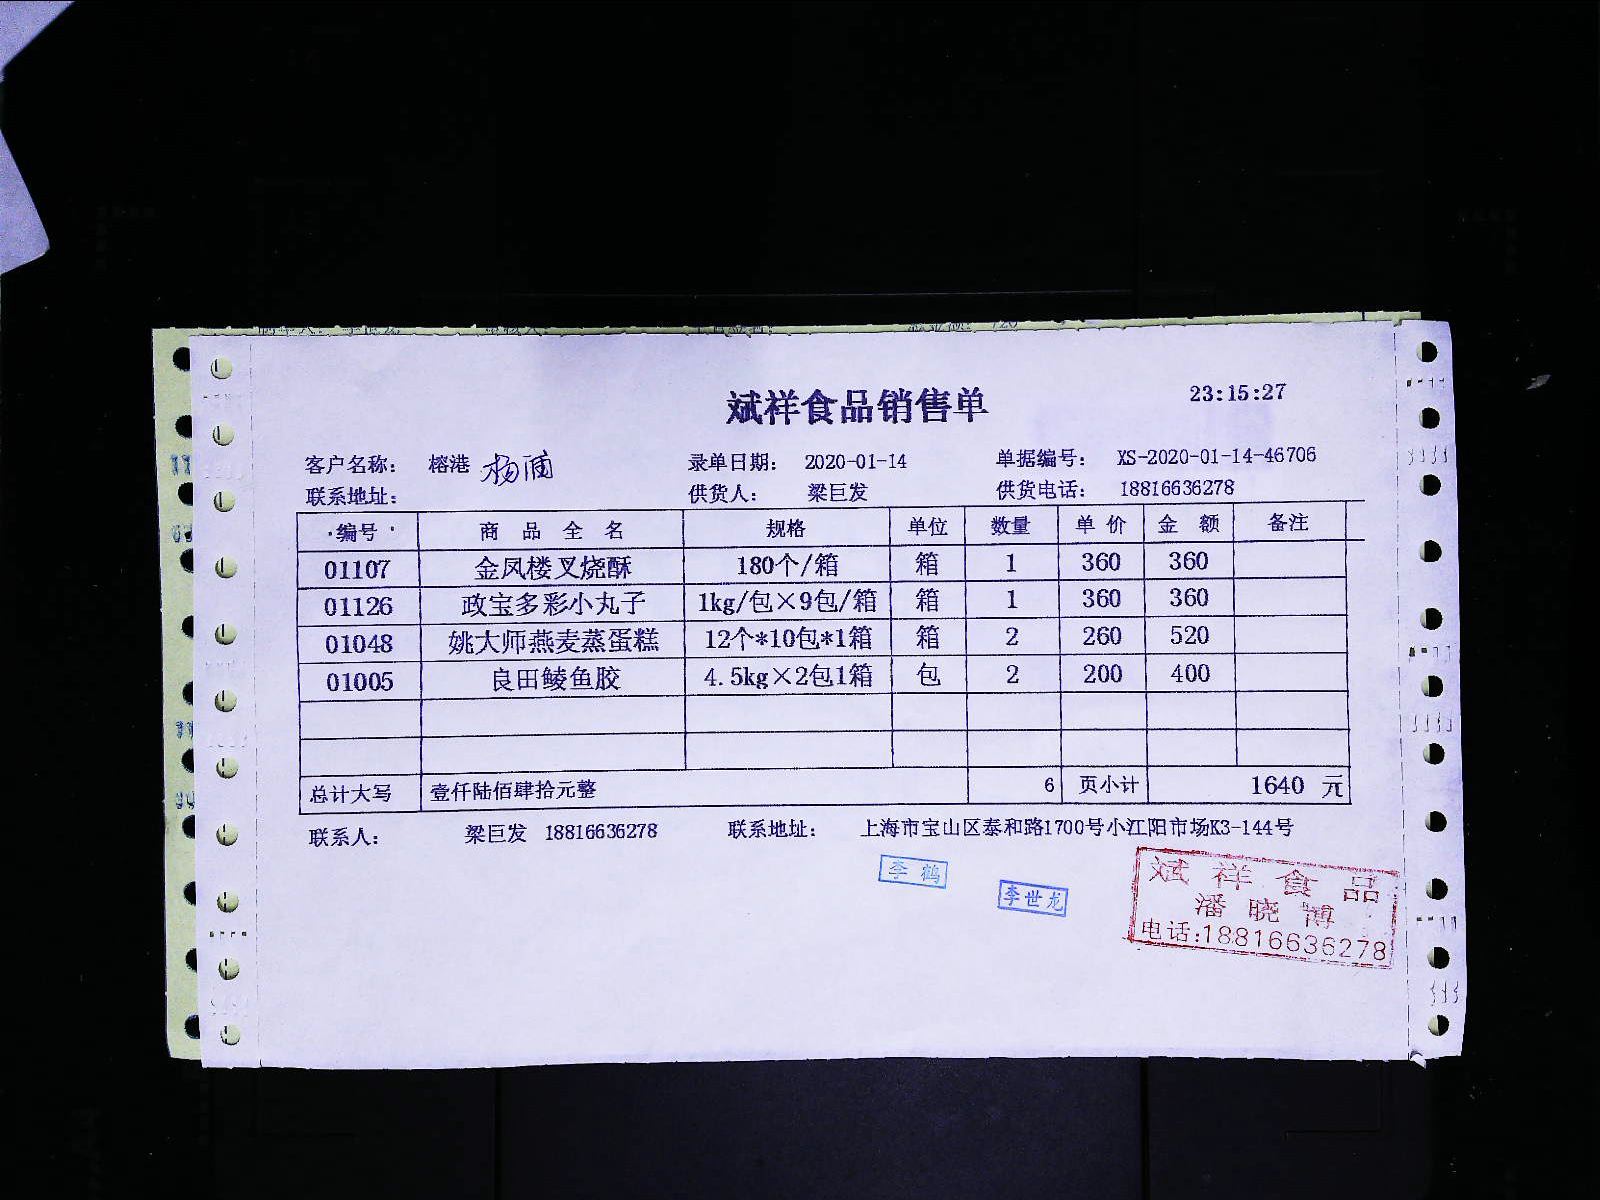 23:15:27
斌祥食品销售单
客户名称： 榕港 录单日期： 2020-01-14 单据编号： XS-2020-01-14-46706
联系地址： 供货人： 梁巨发 供货电话： 18816636278
编号 商品全名 规格 单位 数量 单价 金额 备注
01107 金凤楼叉烧酥 180个/箱 箱 1 360 360
01126 政宝多彩小丸子 1kg/包×9包/箱 箱 1 360 360
01048 姚大师燕麦蒸蛋糕 12个*10包*1箱 箱 2 260 520
01005 良田鲮鱼胶 4.5kg×2包1箱 包 2 200 400
总计大写 壹仟陆佰肆拾元整 6 页小计 1640 元
联系人： 梁巨发 18816636278 联系地址： 上海市宝山区泰和路1700号小江阳市场K3-144号
李鹤
李世龙
斌祥食品
潘晓博
电话:18816636278